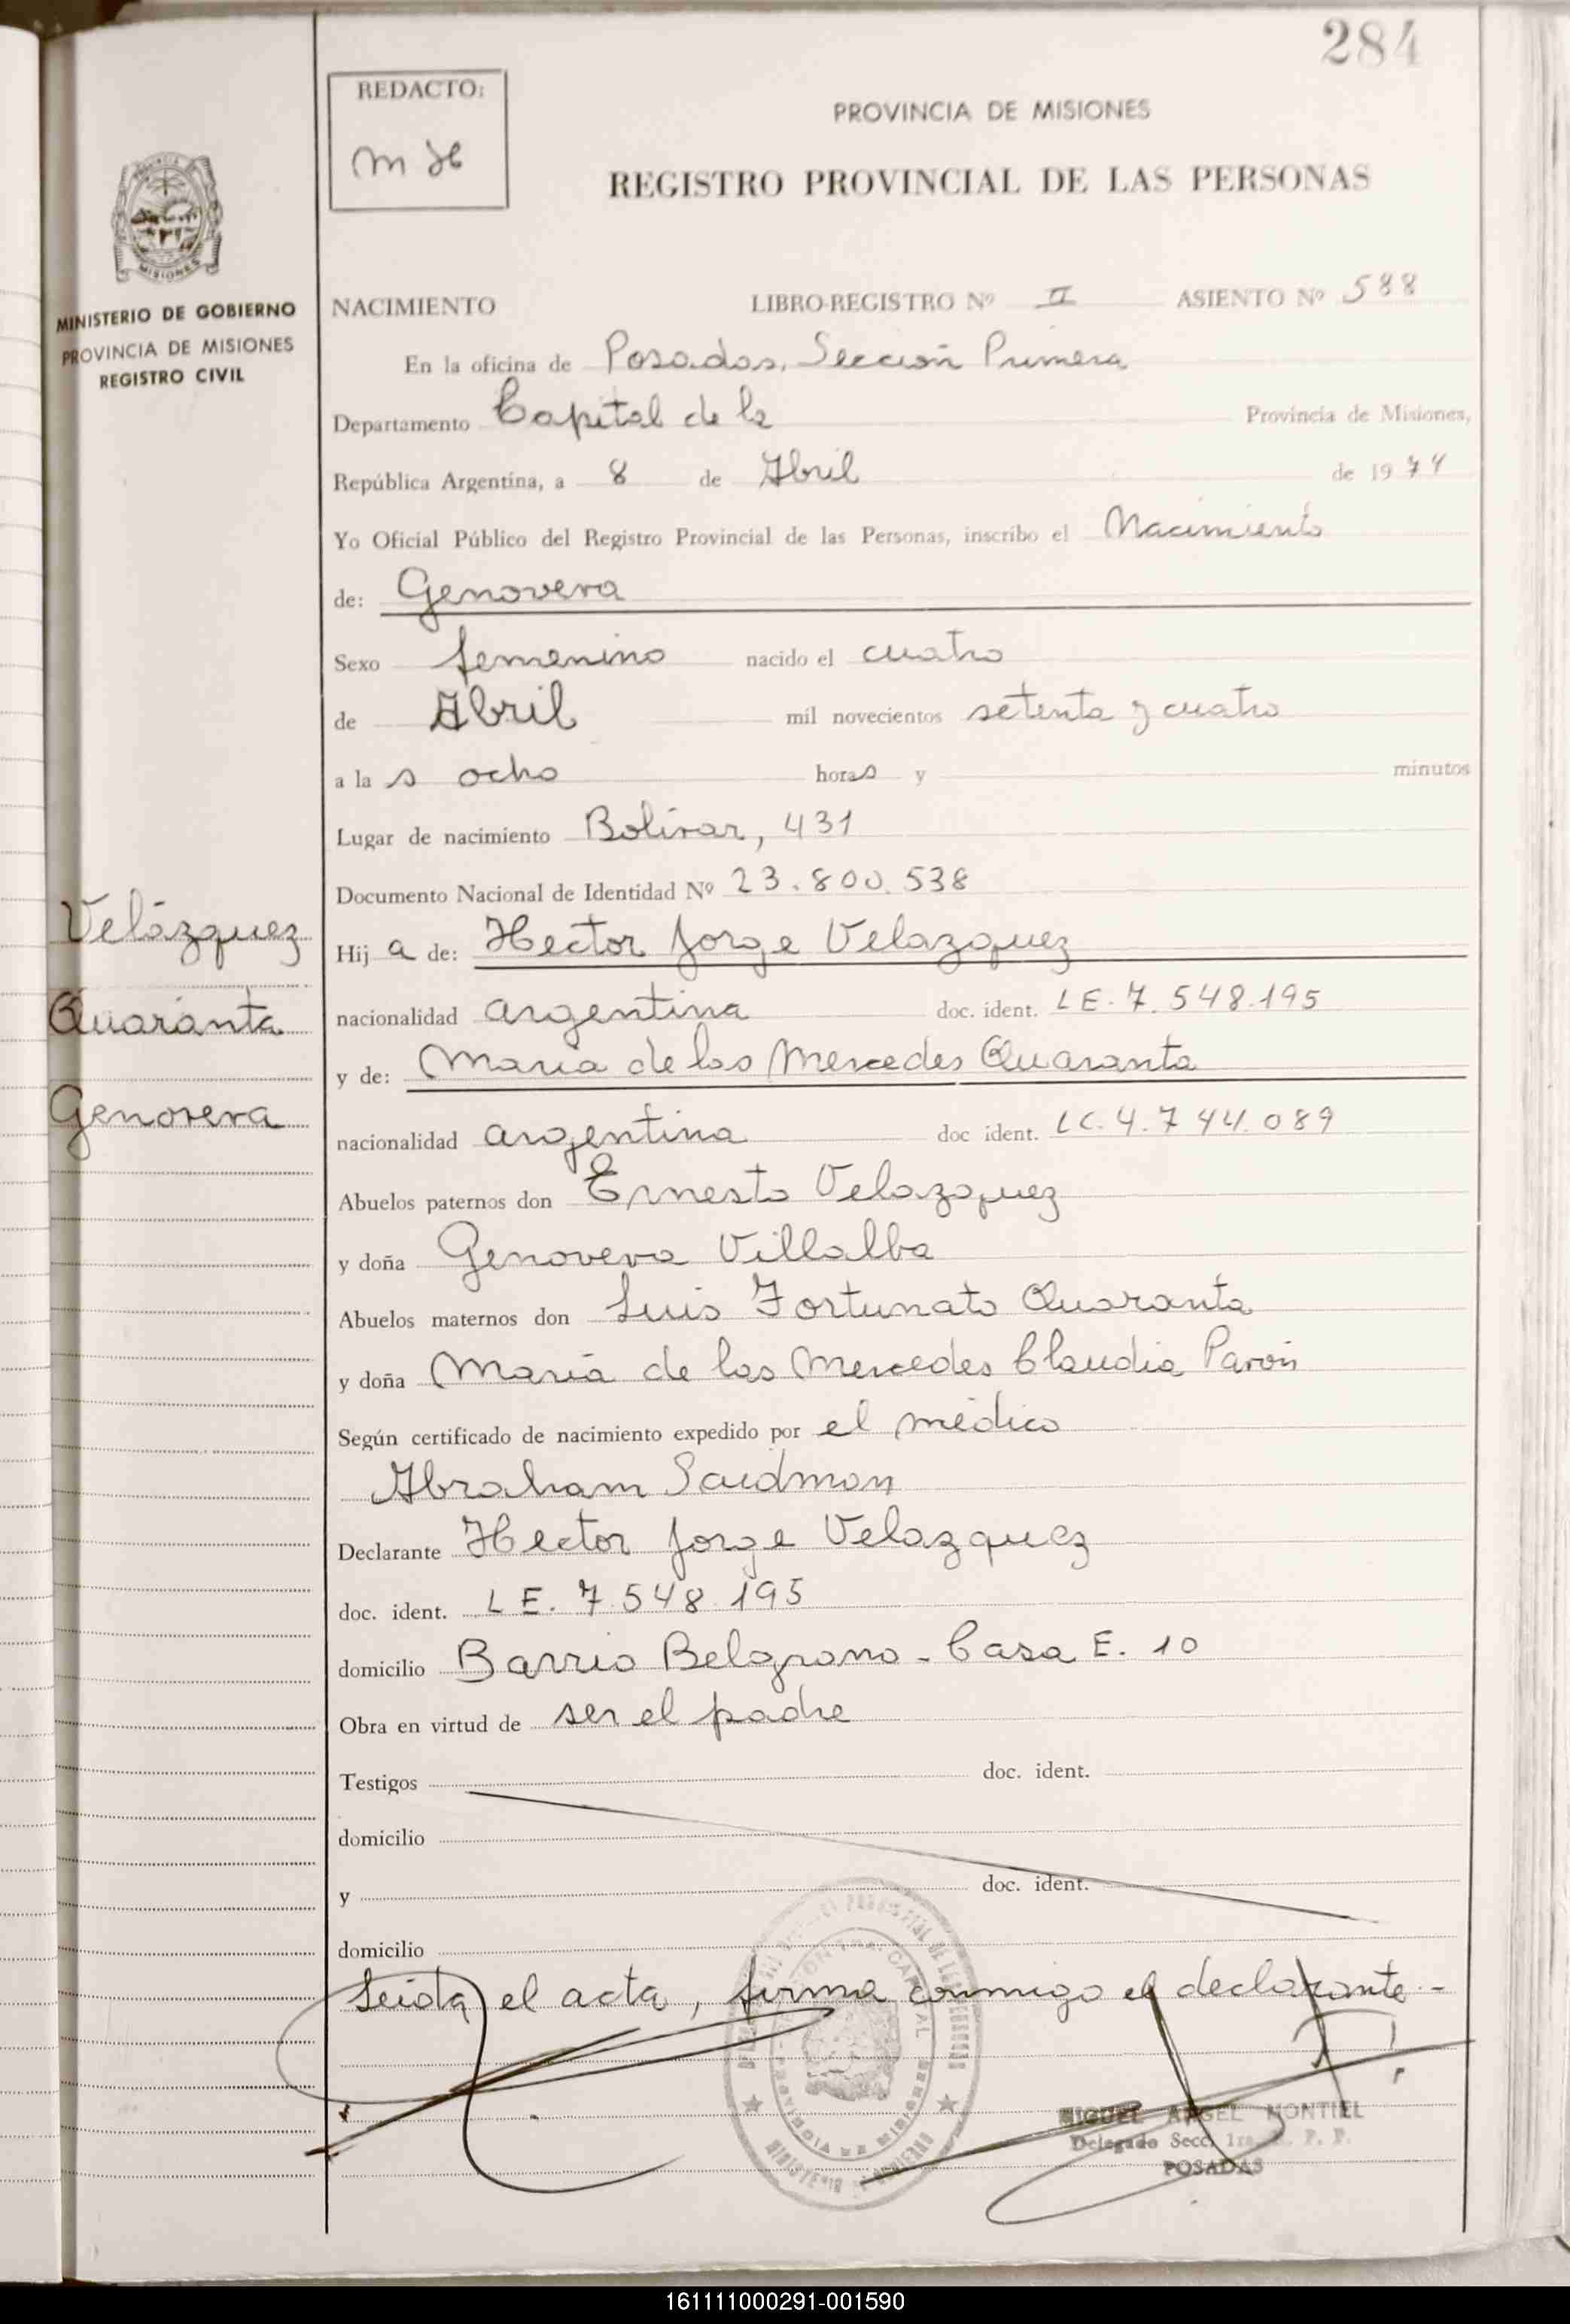 284
REDACTO:
PROVINCIA DE MISIONES
REGISTRO PROVINCIAL DE LAS PERSONAS
MISIONES
MINISTERIO DE GOBIERNO
PROVINCIA DE MISIONES
REGISTRO CIVIL
NACIMIENTO LIBRO-REGISTRO Nº II ASIENTO Nº 588
En la oficina de Posadas, Sección Primera
Departamento Capital de la Provincia de Misiones,
República Argentina, a 8 de Abril de 1974
Yo Oficial Público del Registro Provincial de las Personas, inscribo el Nacimiento
de: Genoveva
Sexo femenino nacido el cuatro
de Abril mil novecientos setenta y cuatro
a la s ocho horas y minutos
Lugar de nacimiento Bolívar, 431
Documento Nacional de Identidad Nº 23.800.538
Velázquez
Hij a de: Hector Jorge Velazquez
Quaranta
nacionalidad argentina doc. ident. LE. 7.548.195
y de: María de las Mercedes Quaranta
Genoveva
nacionalidad argentina doc ident. LC. 4.744.089
Abuelos paternos don Ernesto Velazquez
y doña Genoveva Villalba
Abuelos maternos don Luis Fortunato Quaranta
y doña María de las Mercedes Claudia Parón
Según certificado de nacimiento expedido por el médico
Abraham Saidman
Declarante Hector Jorge Velazquez
doc. ident. LE. 7.548.195
domicilio Barrio Belgrano - Casa E. 10
Obra en virtud de ser el padre
Testigos doc. ident.
domicilio
y doc. ident.
domicilio
Leida el acta, firma conmigo el declarante -
MIGUEL ANGEL MONTIEL
Delegado Secc. 1ra. R. P. P.
POSADAS
161111000291-001590